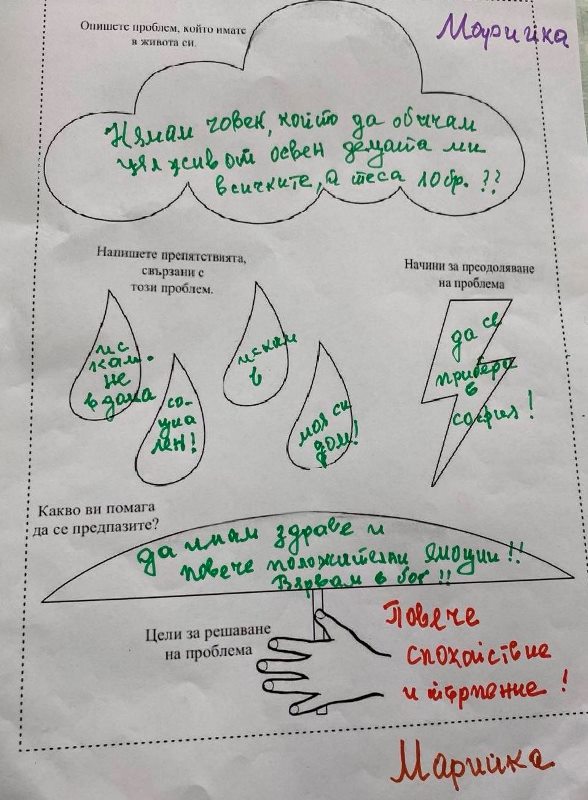 Опишете проблем, който имате
в живота си.
Марийка
Нямам човек, който да обичам
цял живот освен децата ми
всичките, а теса 10бр. ??
Напишете препятствията,
свързани с
този проблем.
Начини за преодоляване
на проблема
ис
кам.
не
в дома
со-
циа
лен!
искам
в
моя си
дом!
да се
прибера
в
софия!
Какво ви помага
да се предпазите?
да имам здраве и
повече положителни емоции!!
Вярвам в бог!!
Цели за решаване
на проблема
Повече
спокайствие
и търпение!
Марийка